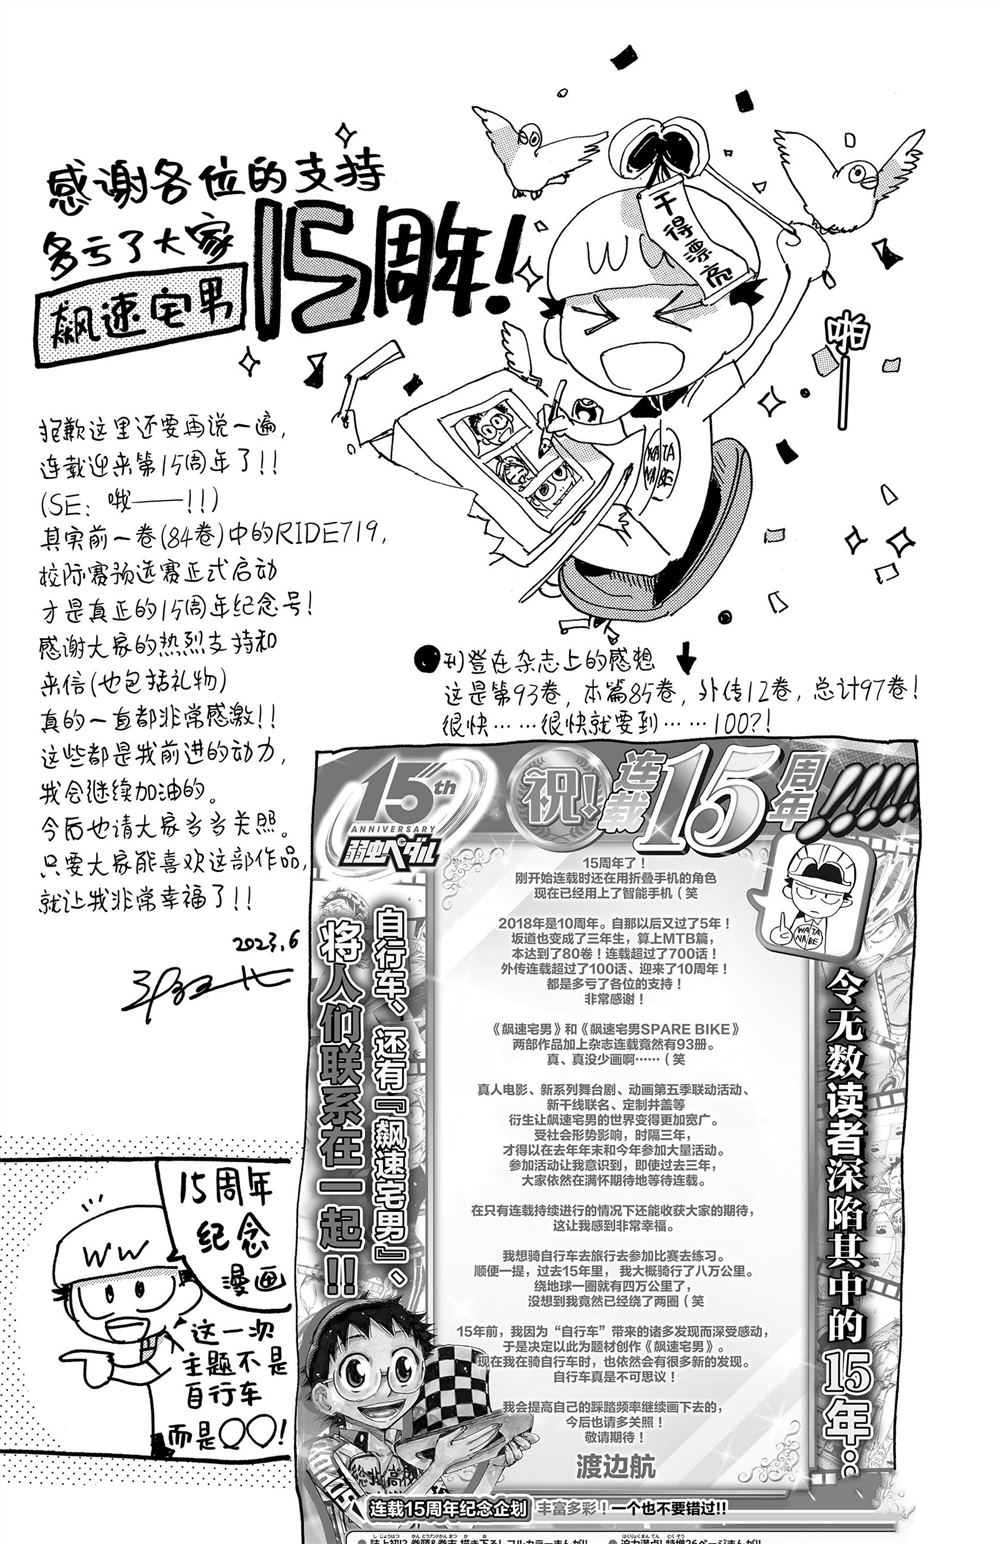 感谢各位的支持
多亏了大家
飙速宅男
15周年!
干得漂亮
WATA
NABE
啪
抱歉这里还要再说一遍,
连载迎来第15周年了!!
(SE: 哦——!!)
其实前一卷(84卷)中的RIDE719,
校际赛预选赛正式启动
才是真正的15周年纪念号!
感谢大家的热烈支持和
来信(也包括礼物)
真的一直都非常感激!!
这些都是我前进的动力,
我会继续加油的。
今后也请大家多多关照。
只要大家能喜欢这部作品,
就让我非常幸福了!!
2023.6
●刊登在杂志上的感想 ↓
这是第93卷, 本篇85卷, 外传12卷, 总计97卷!
很快……很快就要到……100?!
15th
ANNIVERSARY
弱虫ペダル
祝!连载15周年!!!!!
15周年了!
刚开始连载时还在用折叠手机的角色
现在已经用上了智能手机(笑
2018年是10周年。自那以后又过了5年!
坂道也变成了三年生，算上MTB篇，
本达到了80卷!连载超过了700话!
外传连载超过了100话、迎来了10周年!
都是多亏了各位的支持!
非常感谢!
《飙速宅男》和《飙速宅男SPARE BIKE》
两部作品加上杂志连载竟然有93册。
真、真没少画啊……(笑
真人电影、新系列舞台剧、动画第五季联动活动、
新干线联名、定制井盖等
衍生让飙速宅男的世界变得更加宽广。
受社会形势影响，时隔三年，
才得以在去年年末和今年参加大量活动。
参加活动让我意识到，即使过去三年，
大家依然在满怀期待地等待连载。
在只有连载持续进行的情况下还能收获大家的期待，
这让我感到非常幸福。
我想骑自行车去旅行去参加比赛去练习。
顺便一提，过去15年里，我大概骑行了八万公里。
绕地球一圈就有四万公里了，
没想到我竟然已经绕了两圈(笑
15年前，我因为“自行车”带来的诸多发现而深受感动，
于是决定以此为题材创作《飙速宅男》。
现在我在骑自行车时，也依然会有很多新的发现。
自行车真是不可思议!
我会提高自己的踩踏频率继续画下去的，
今后也请多关照!
敬请期待!
渡边航
WATA
NABE
自行车、还有『飙速宅男』、
将人们联系在一起!!
令无数读者深陷其中的15年…
総北高
连载15周年纪念企划 丰富多彩!一个也不要错过!!
WW
15周年
纪念
漫画
这一次
主题不是
自行车
而是○○!